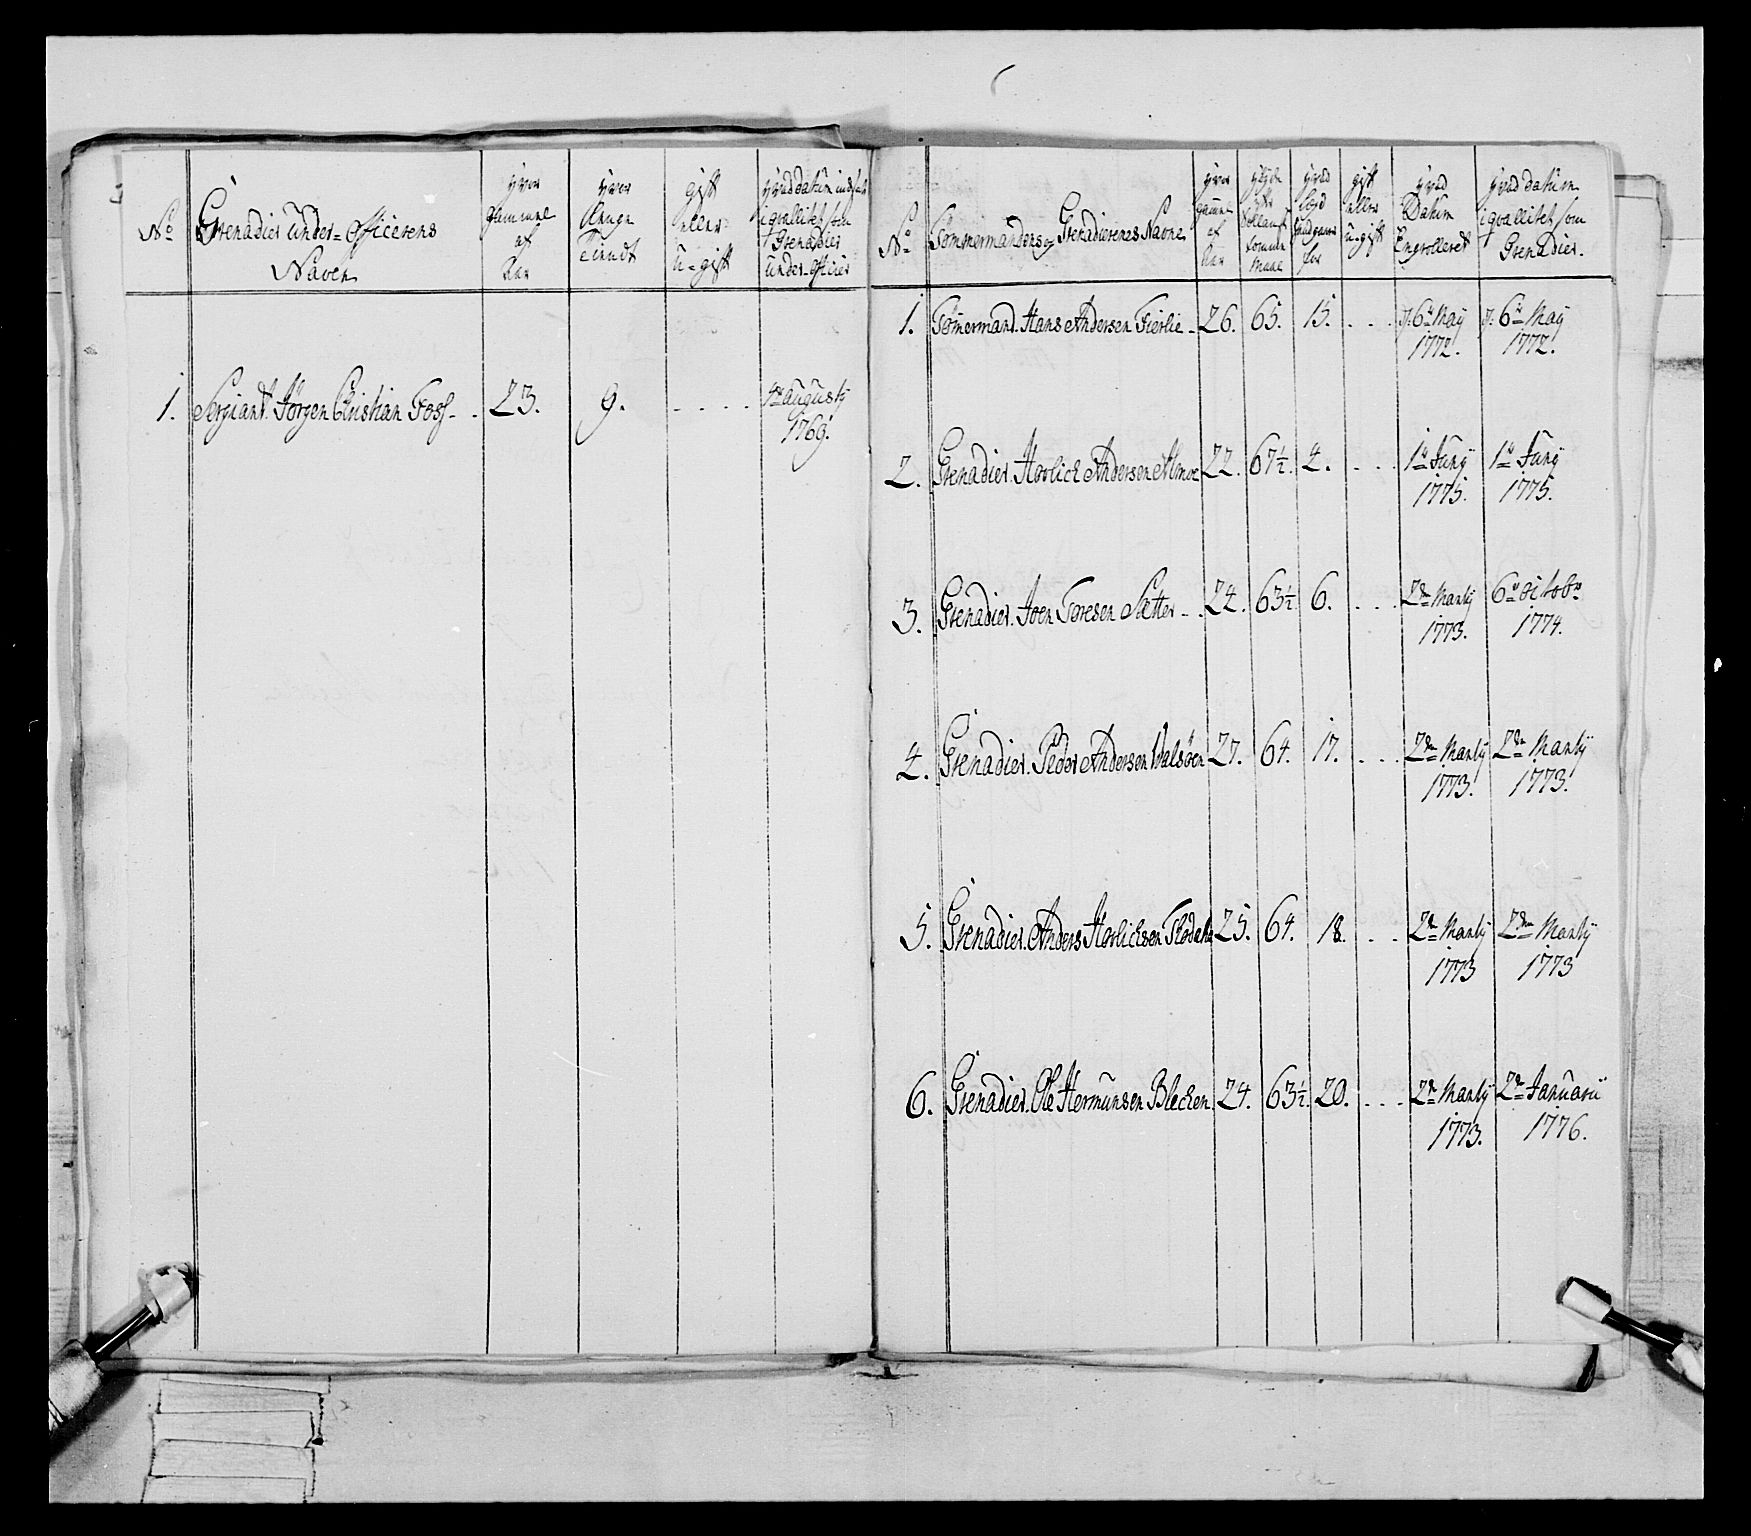 No
Grenadier Under-Officerens
Naven
hvor
Gammel
af
Aar
hvor
Lenge
Tiendt
gift
eller
u-gift
hvad datum indsat
i qvallitet som
Grenadier
Under-Officier
1. Sergiant Jørgen Christian Foss - . 23. 9. . . . . Augusty
1769.
No
Tømmermandens og Grenadierenes Navne
hvor
gammel
af
Aar
Tomme
Maal
hvad
Lægd
for
gift
eller
u-gift
hvad
Datum
Engrolleret
hvad datum
i qvallitet som
Grenadier.
1. Tømermand. Hans Andersen Fierlie - 26. 65. 15. . . . d. 6te May d. 6te May
1772. 1772.
2. Grenadier. Hovlich Andersen Almoe 22. 67½. 4. . . . 1te Juny 1te Juny
1775. 1775.
3. Grenadier. Joen Toresen Sætter - . 24. 63½ 6. . . . 2den Marty 6te Octobr
1773. 1774.
4. Grenadier. Peder Andersen Walsøen 27. 64. 17. . . . 2den Marty 2den Marty
1773. 1773.
5. Grenadier. Anders Hovlichsen 25. 64. 18. . . 2den Marty 2den Marty
1773 1773
6. Grenadier. Ole Hermunsen Blecken. 24. 63½. 20. . . . 2den Marty 2den Januarii
1773. 1776.